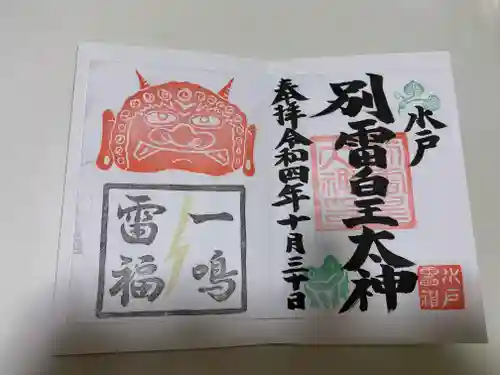 水戸
別雷皇太神
奉拝令和四年十月三十日
一鳴
雷福
水戸